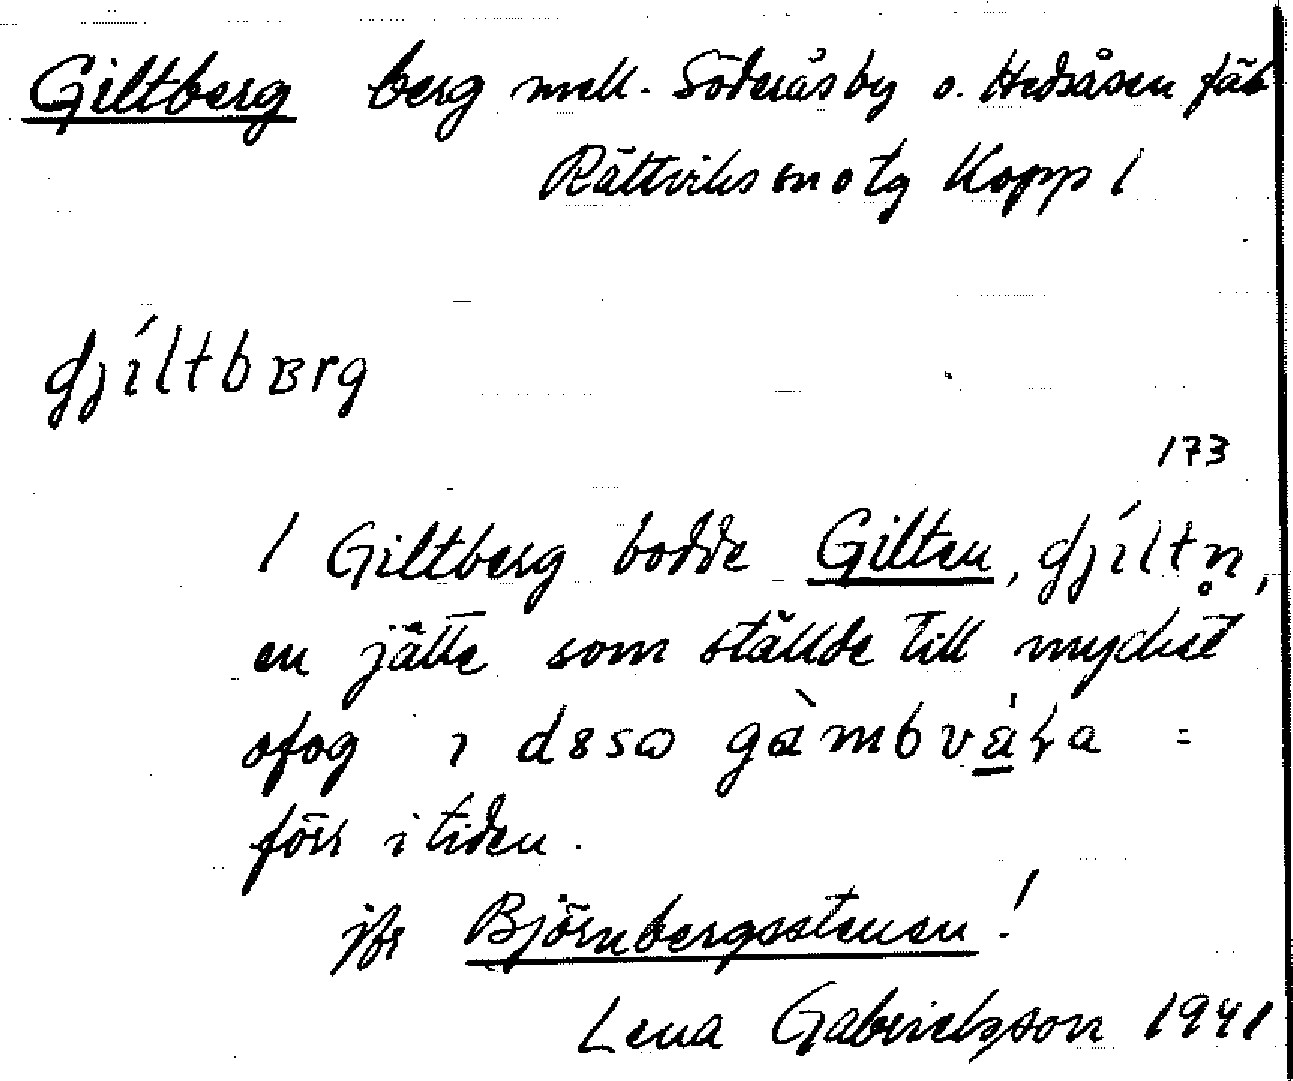 Giltberg berg mell. Söderåsby o. Hedsåsen fäb
Rättviks sn o tg Kopp l
gjíltbɞrg
173
I Giltberg bodde Gilten, gjíltn̥,
en jätte som ställde till mycket
ofog i
förr i tiden.
jfr Björnbergsstenen!
Lena Gabrielsson 1941